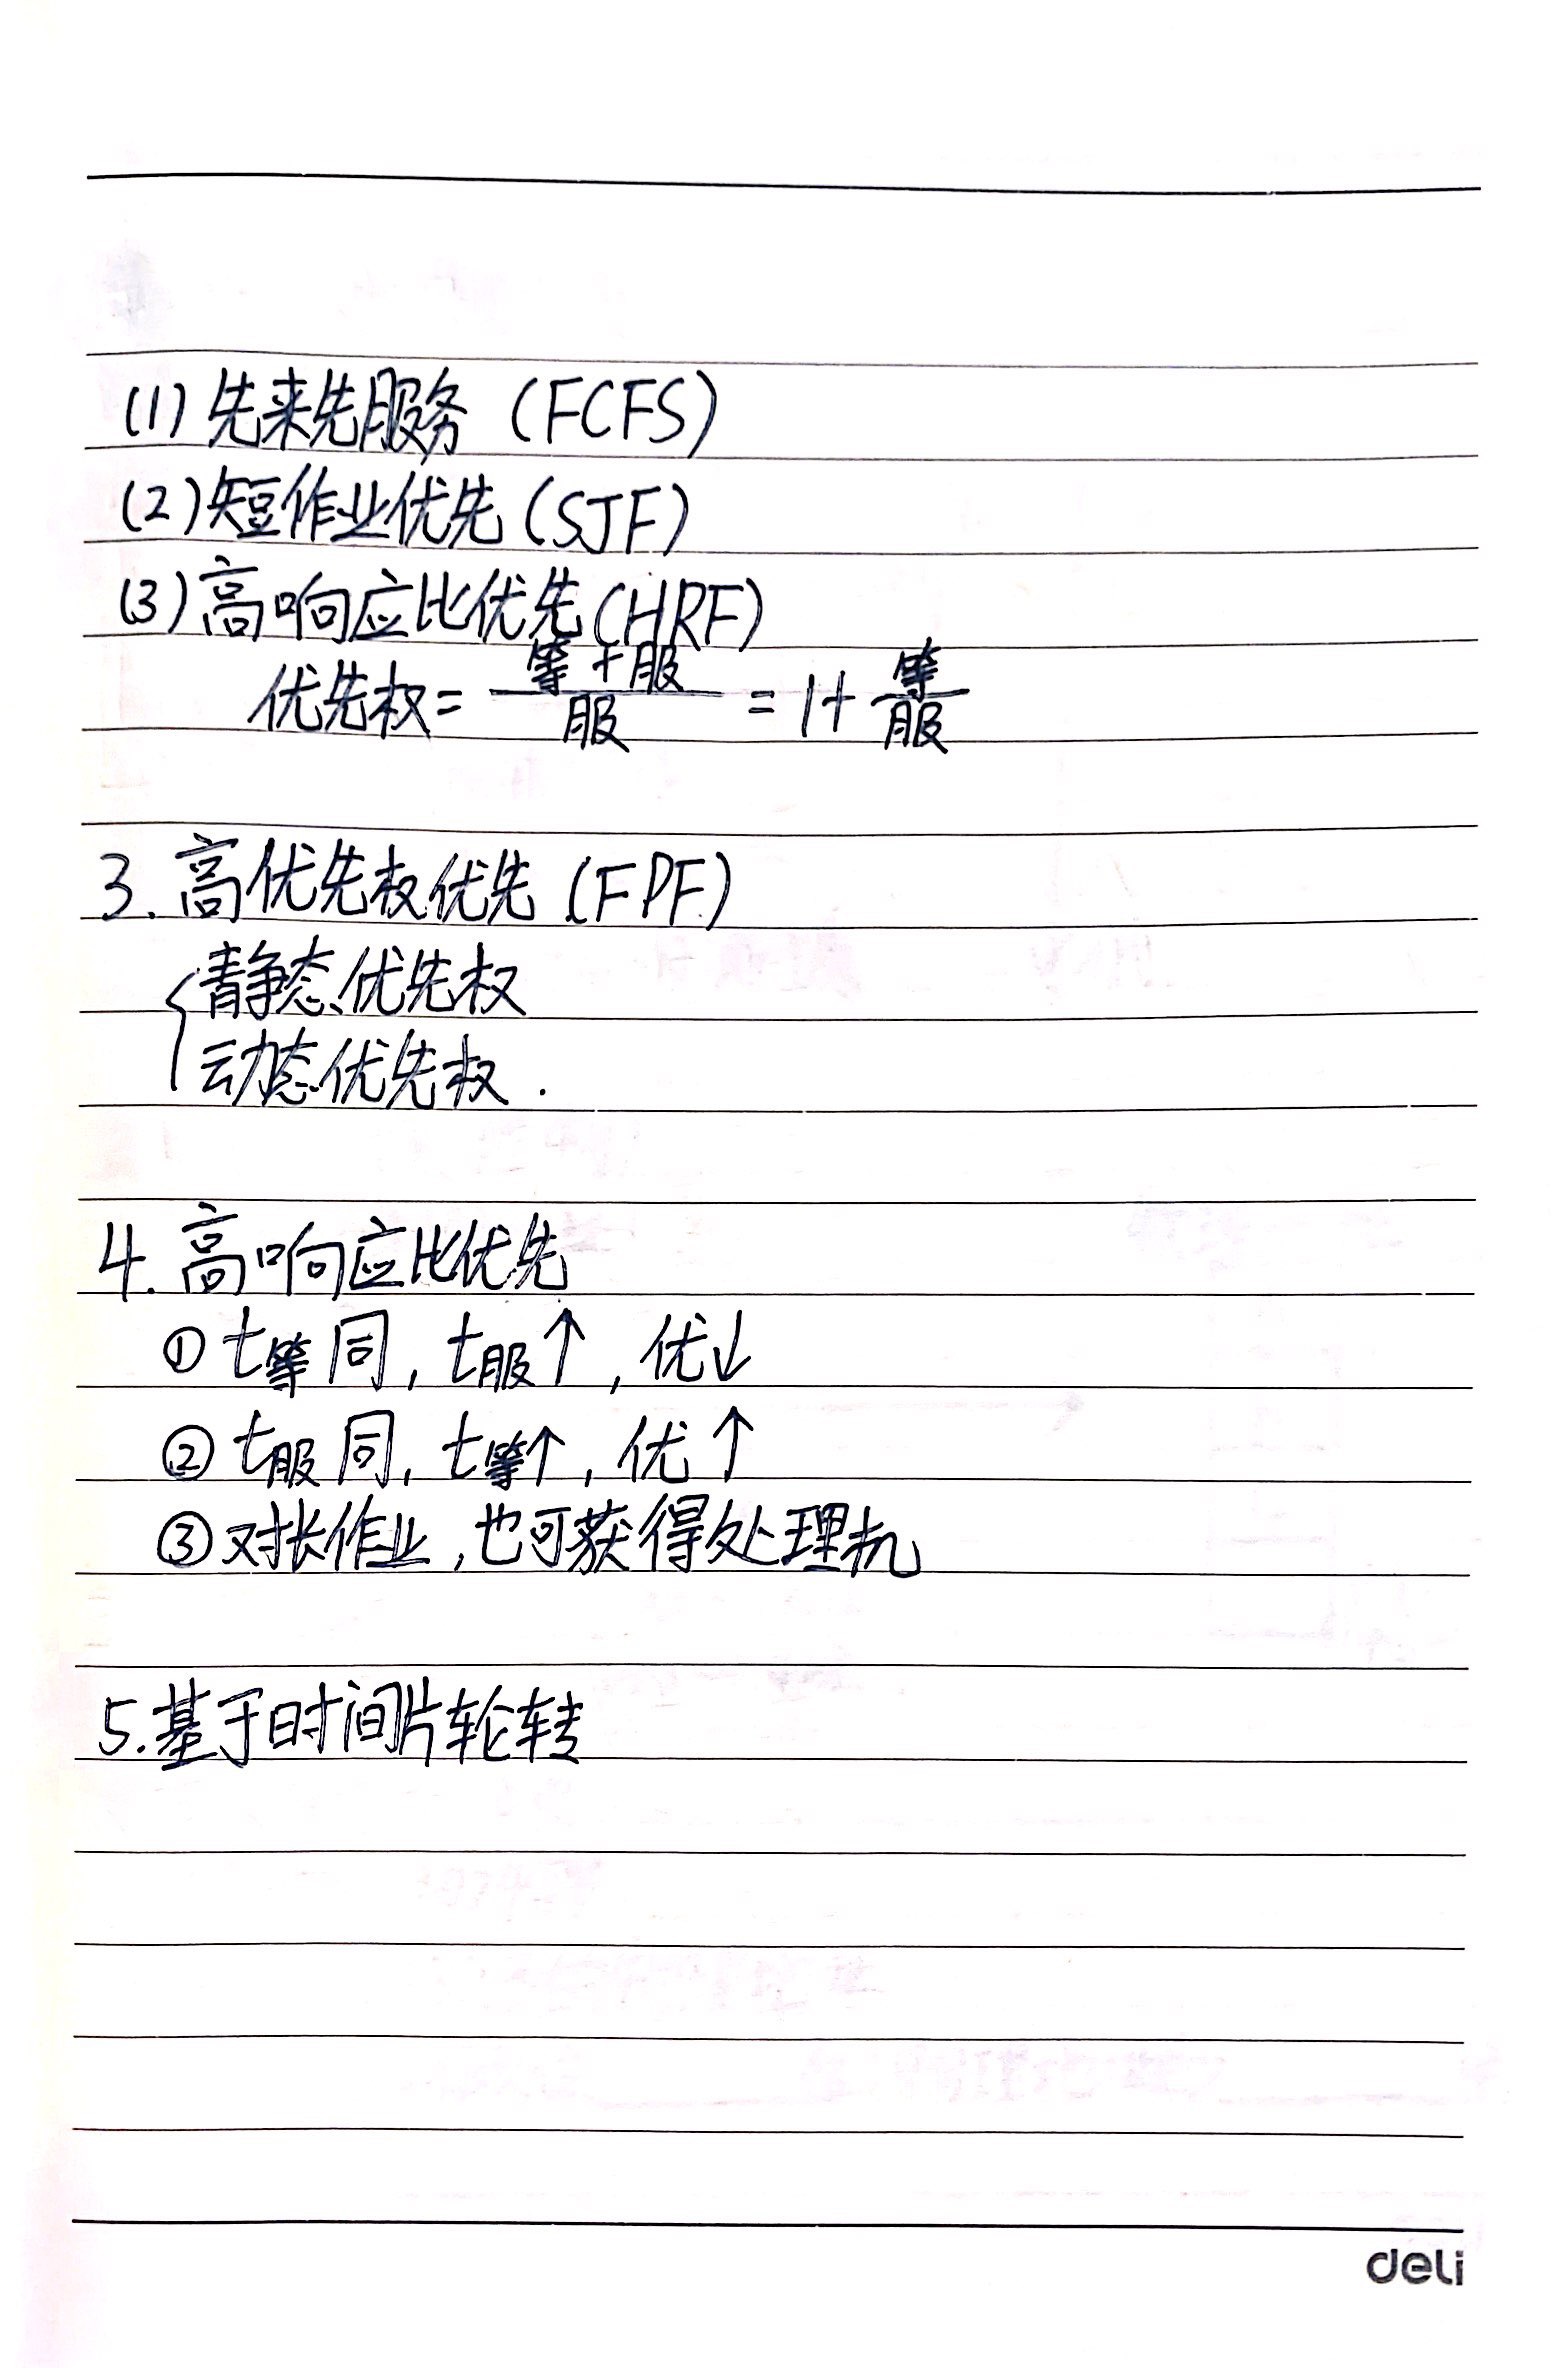 (1) 先来先服务 (FCFS)
(2) 短作业优先 (SJF)
(3) 高响应比优先 (HRF)
优先权 = (等+服)/服 = 1+ 等/服
3. 高优先权优先 (FPF)
{静态优先权
动态优先权.
4. 高响应比优先
① t等同, t服↑, 优↓
② t服同, t等↑, 优↑
③ 对长作业, 也可获得处理机
5. 基于时间片轮转
deli